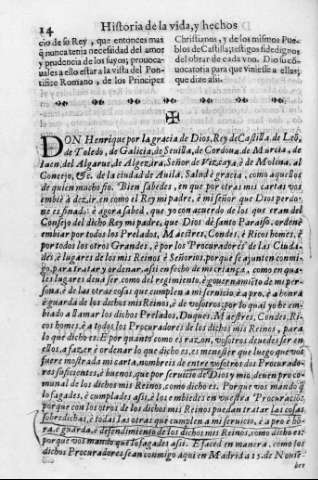 14 Historia de la vida, y hechos
cio de su Rey, que entonces mas
q̃ nunca tenia necesidad del amor
y prudencia de los suyos; prouoca-
uales a ello estar a la vista del Pon-
tifice Romano, de los Principes
Christianos, y de los mismos Pue-
blos de Castilla; testigos fidedignos
del obrar de cada vno. Dio su cō-
uocatoria para que viniesse a ellas;
que dize assi.
DON Henrique por la gracia de Dios, Rey de Castilla, de Leō,
de Toledo, de Galicia, de Seuilla, de Cordoua, de Murcia, de
Iaen, del Algarue, de Algezira, Señor de Vizcaya, è de Molina. al
Conejo, &c. de la ciudad de Auila. Salud è gracia, como aquellos
de quien mucho fio. Bien sabedes, en que por otras mis cartas vos
embiè à dezir, en como el Rey mi padre, è mi señor que Dios perdo-
ne es finado: è agora sabed, que yo con acuerdo de los que eran del
Consejo del dicho Rey mi padre, que Dios de santo Paraiso, ordenè
embiar por todos los Prelados, Maestres, Condes, è Ricos homes, è
por todos los otros Grandes, è por los Procuradores de las Ciuda-
des è lugares de los mis Reinos è Señorios, porque se ajunten conmi-
go, para tratar y ordenar, assi en fecho de mi criança, como en qua-
les lugares deua ser, como del regimiento, è gouernamiēto de mi per-
sona, è de las otras cosas que cumplen a mi seruicio, è a pro, è a honra
è guarda de los dichos mis Reinos, è de vosotros: por lo qual yo he em-
biado a llamar a los dichos Prelados, Duques, Maestres, Condes, Ri-
cos homes, è a todos los Procuradores de los dichos mis Reinos, para
lo que dicho es. E por quanto como es razon, vosotros deuedes ser en
ellos, a fazer è ordenar lo que dicho es, es menester que luego que vos
fuere mostrada mi carta, nombreis de entre vosotros dos Procurado-
res suficientes, è buenos, que por seruicio de Dios y mio, è deuen pro co-
munal de los dichos mis Reinos, como dicho es. Porque vos mando q̃
lo fagades, è cumplades assi, è los embiedes con vuestra Procuracio,
porque con los otros de los dichos mis Reinos puedan tratar las cosas
sobredichas, è todas las otras que cumplen a mi seruicio, è a pro è ho-
ra, è guarda, è defendimiento de los dichos mis Reinos, como dicho es:
porque vos mando que lo fagades assi. E faced en manera, como los
dichos Procuradores sean conmigo aqui en Madrid a 15. de Nouie-
bre